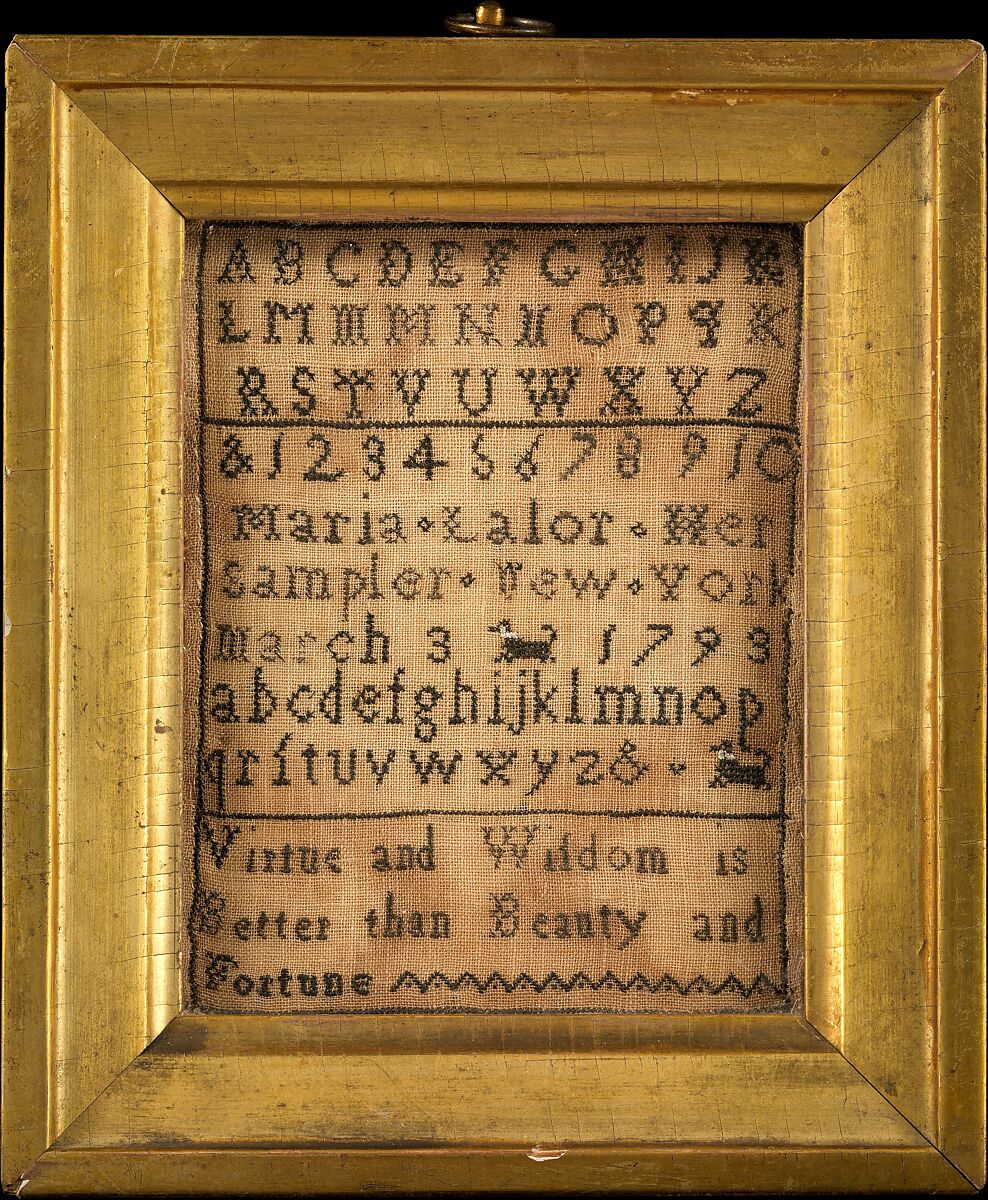 A B C D E F G H I J K
L M M M N N O P q K
R S T V U W X Y Z
& 1 2 3 4 5 6 7 8 9 10
Maria Lalor Her
sampler New York
march 3 1793
abcdefghijklmnop
qrſtuvwxyz&
Virtue and Wiſdom is
Better than Beauty and
Fortune